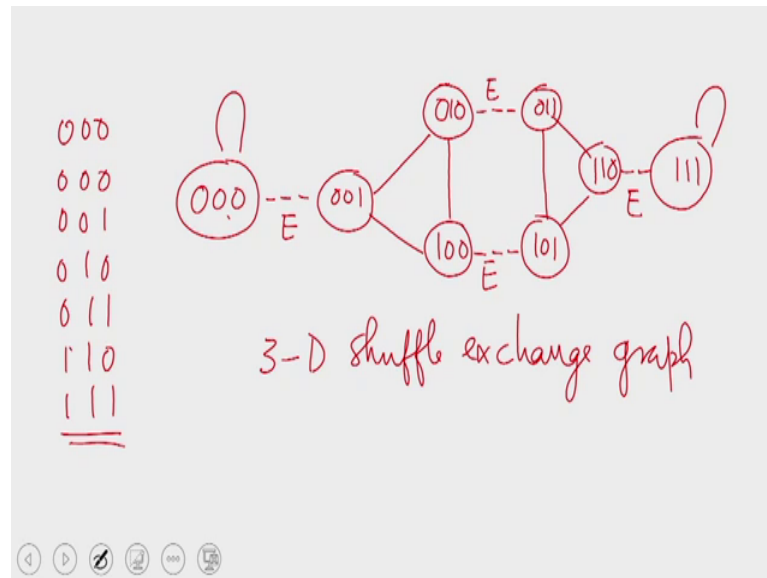 000
000
001
010
011
110
111
010 E 011
000 E 001 110 E 111
100 E 101
3-D shuffle exchange graph